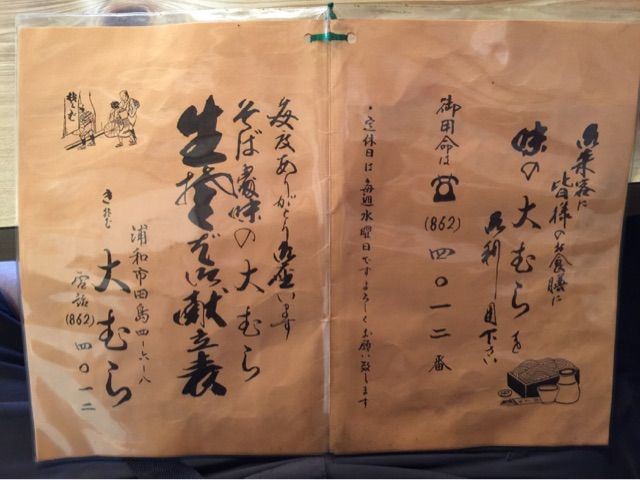 御来客に
皆様のお食膳に
味の大むらを
御利用下さい
御用命は☎(862)四〇一二番
・定休日は毎週水曜日ですよろしくお願い致します
毎度ありがとう御座います
そば
味の大むら
生そば御献立表
大むら
浦和市田島四-六-八
電話(862)四〇一二